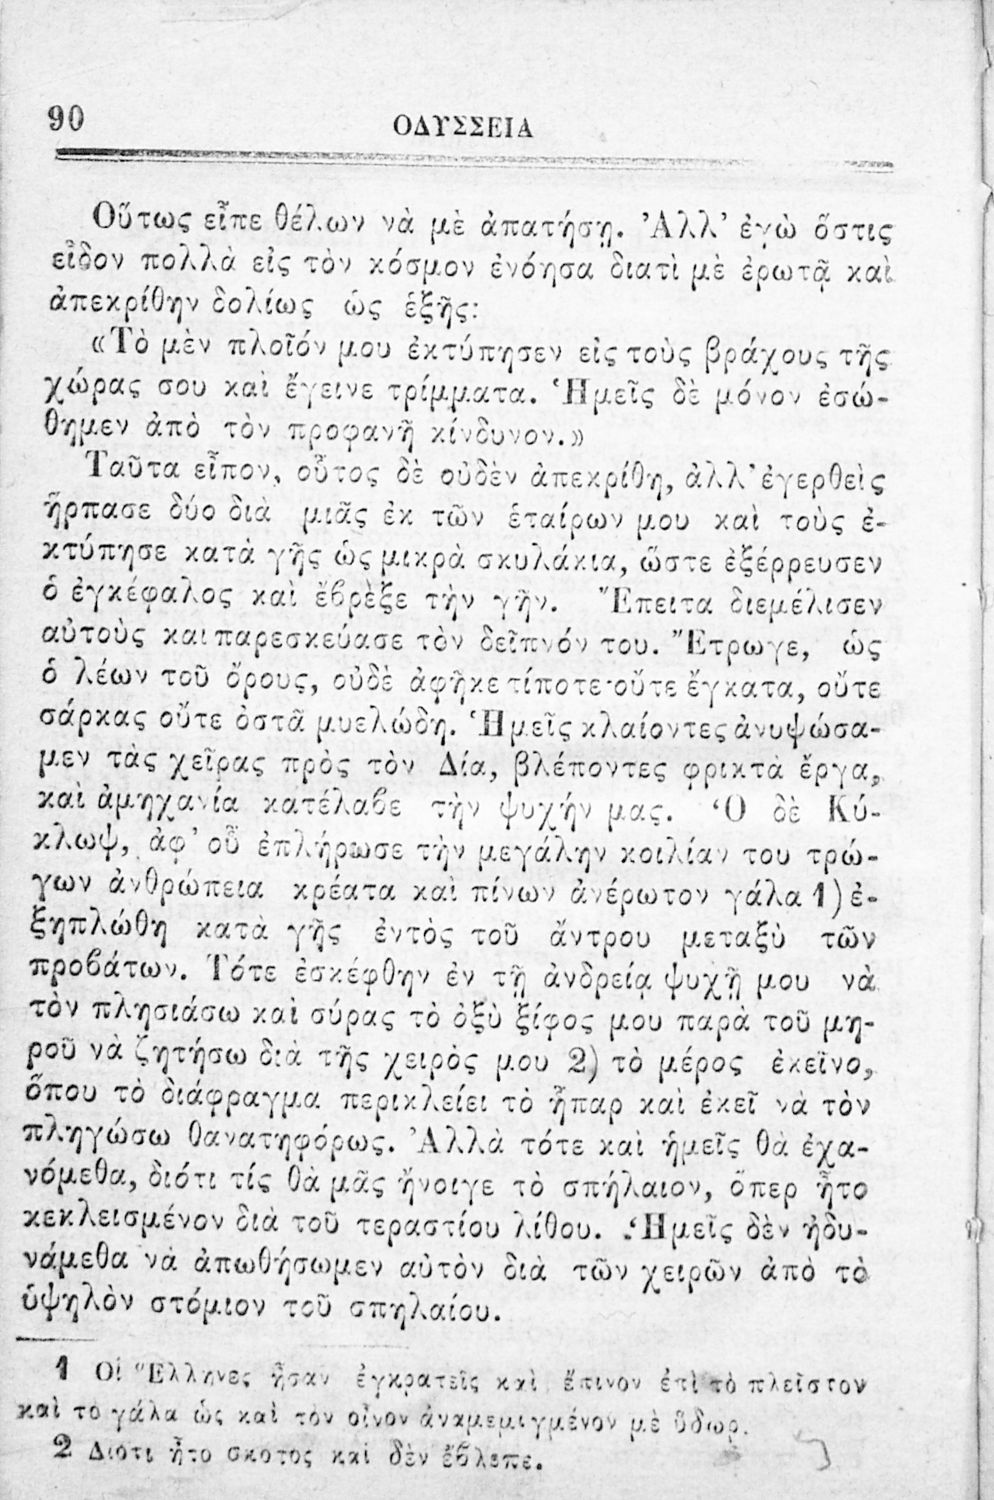 90
ΟΔΥΣΣΕΙΑ
Οὕτως εἶπε θέλων νὰ μὲ ἀπατήσῃ. Ἀλλ’ ἐγὼ ὅστις
εἶδον πολλὰ εἰς τὸν κόσμον ἐνόησα διατὶ μὲ ἐρωτᾷ καὶ
ἀπεκρίθην δολίως ὡς ἑξῆς:
«Τὸ μὲν πλοῖόν μου ἐκτύπησεν εἰς τοὺς βράχους τῆς
χώρας σου καὶ ἔγεινε τρίμματα. Ἡμεῖς δὲ μόνον ἐσώ-
θημεν ἀπὸ τὸν προφανῆ κίνδυνον.»
Ταῦτα εἶπον, οὗτος δὲ οὐδὲν ἀπεκρίθη, ἀλλ’ ἐγερθεὶς
ἥρπασε δύο διὰ μιᾶς ἐκ τῶν ἑταίρων μου καὶ τοὺς ἐ-
κτύπησε κατὰ γῆς ὡς μικρὰ σκυλάκια, ὥστε ἐξέρρευσεν
ὁ ἐγκέφαλος καὶ ἔβρεξε τὴν γῆν. Ἔπειτα διεμέλισεν
αὐτοὺς και παρεσκεύασε τὸν δεῖπνόν του. Ἔτρωγε, ὡς
ὁ λέων τοῦ ὄρους, οὐδὲ ἀφῆκε τίποτε· οὔτε ἔγκατα, οὔτε
σάρκας οὔτε ὀστᾶ μυελώδη. Ἡμεῖς κλαίοντες ἀνυψώσα-
μεν τὰς χεῖρας πρὸς τὸν Δία, βλέποντες φρικτὰ ἔργα,
καὶ ἀμηχανία κατέλαβε τὴν ψυχήν μας. Ὁ δὲ Κύ-
κλωψ, ἀφ’ οὗ ἐπλήρωσε τὴν μεγάλην κοιλίαν του τρώ-
γων ἀνθρώπεια κρέατα καὶ πίνων ἀνέρωτον γάλα 1) ἐ-
ξηπλώθη κατὰ γῆς ἐντὸς τοῦ ἄντρου μεταξὺ τῶν
προβάτων. Τότε ἐσκέφθην ἐν τῇ ἀνδρείᾳ ψυχῇ μου νὰ
τὸν πλησιάσω καὶ σύρας τὸ ὀξὺ ξίφος μου παρὰ τοῦ μη-
ροῦ νὰ ζητήσω διὰ τῆς χειρὸς μου 2) τὸ μέρος ἐκεῖνο,
ὅπου τὸ διάφραγμα περικλείει τὸ ἧπαρ καὶ ἐκεῖ νὰ τὸν
πληγώσω θανατηφόρως. Ἀλλὰ τότε καὶ ἡμεῖς θὰ ἐχα-
νόμεθα, διότι τίς θὰ μᾶς ἤνοιγε τὸ σπήλαιον, ὅπερ ἦτο
κεκλεισμένον διὰ τοῦ τεραστίου λίθου. Ἡμεῖς δὲν ἠδυ-
νάμεθα νὰ ἀπωθήσωμεν αὐτὸν διὰ τῶν χειρῶν ἀπὸ τὸ
ὑψηλὸν στόμιον τοῦ σπηλαίου.
1 Οἱ Ἕλληνες ἦσαν ἐγκρατεῖς καὶ ἔπινον ἐπὶ τὸ πλεῖστον
καὶ το γάλα ὡς καὶ τὸν οἶνον ἀναμεμιγμένον μὲ ὕδωρ.
2 Διότι ἦτο σκοτος καὶ δὲν ἔβλεπε.